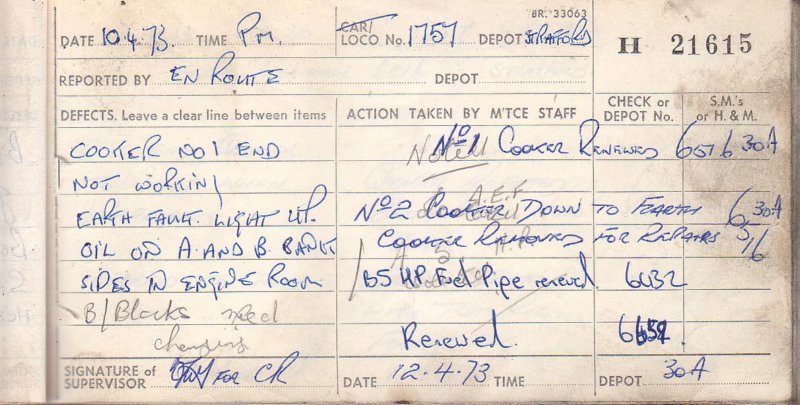 BR. 33063
DATE 10.4.73. TIME P.M. CAR/ LOCO No. 1757 DEPOT STRATFORD H 21615
REPORTED BY EN ROUTE DEPOT
DEFECTS. Leave a clear line between items ACTION TAKEN BY M'TCE STAFF CHECK or DEPOT No. S.M.'s or H. & M.
COOKER NO 1 END No 1 COOKER RENEWED 6516 30A
NOT WORKING
EARTH FAULT. LIGHT UP. No 2 COOKER DOWN TO EARTH 30A
OIL ON A AND B BANK COOKER REMOVED FOR REPAIRS
SIDES IN ENGINE ROOM B5 HP Fuel Pipe renewed. 6632
B/Blocks need
changing Renewed.
SIGNATURE of SUPERVISOR FOR CR DATE 12.4.73 TIME DEPOT 30A